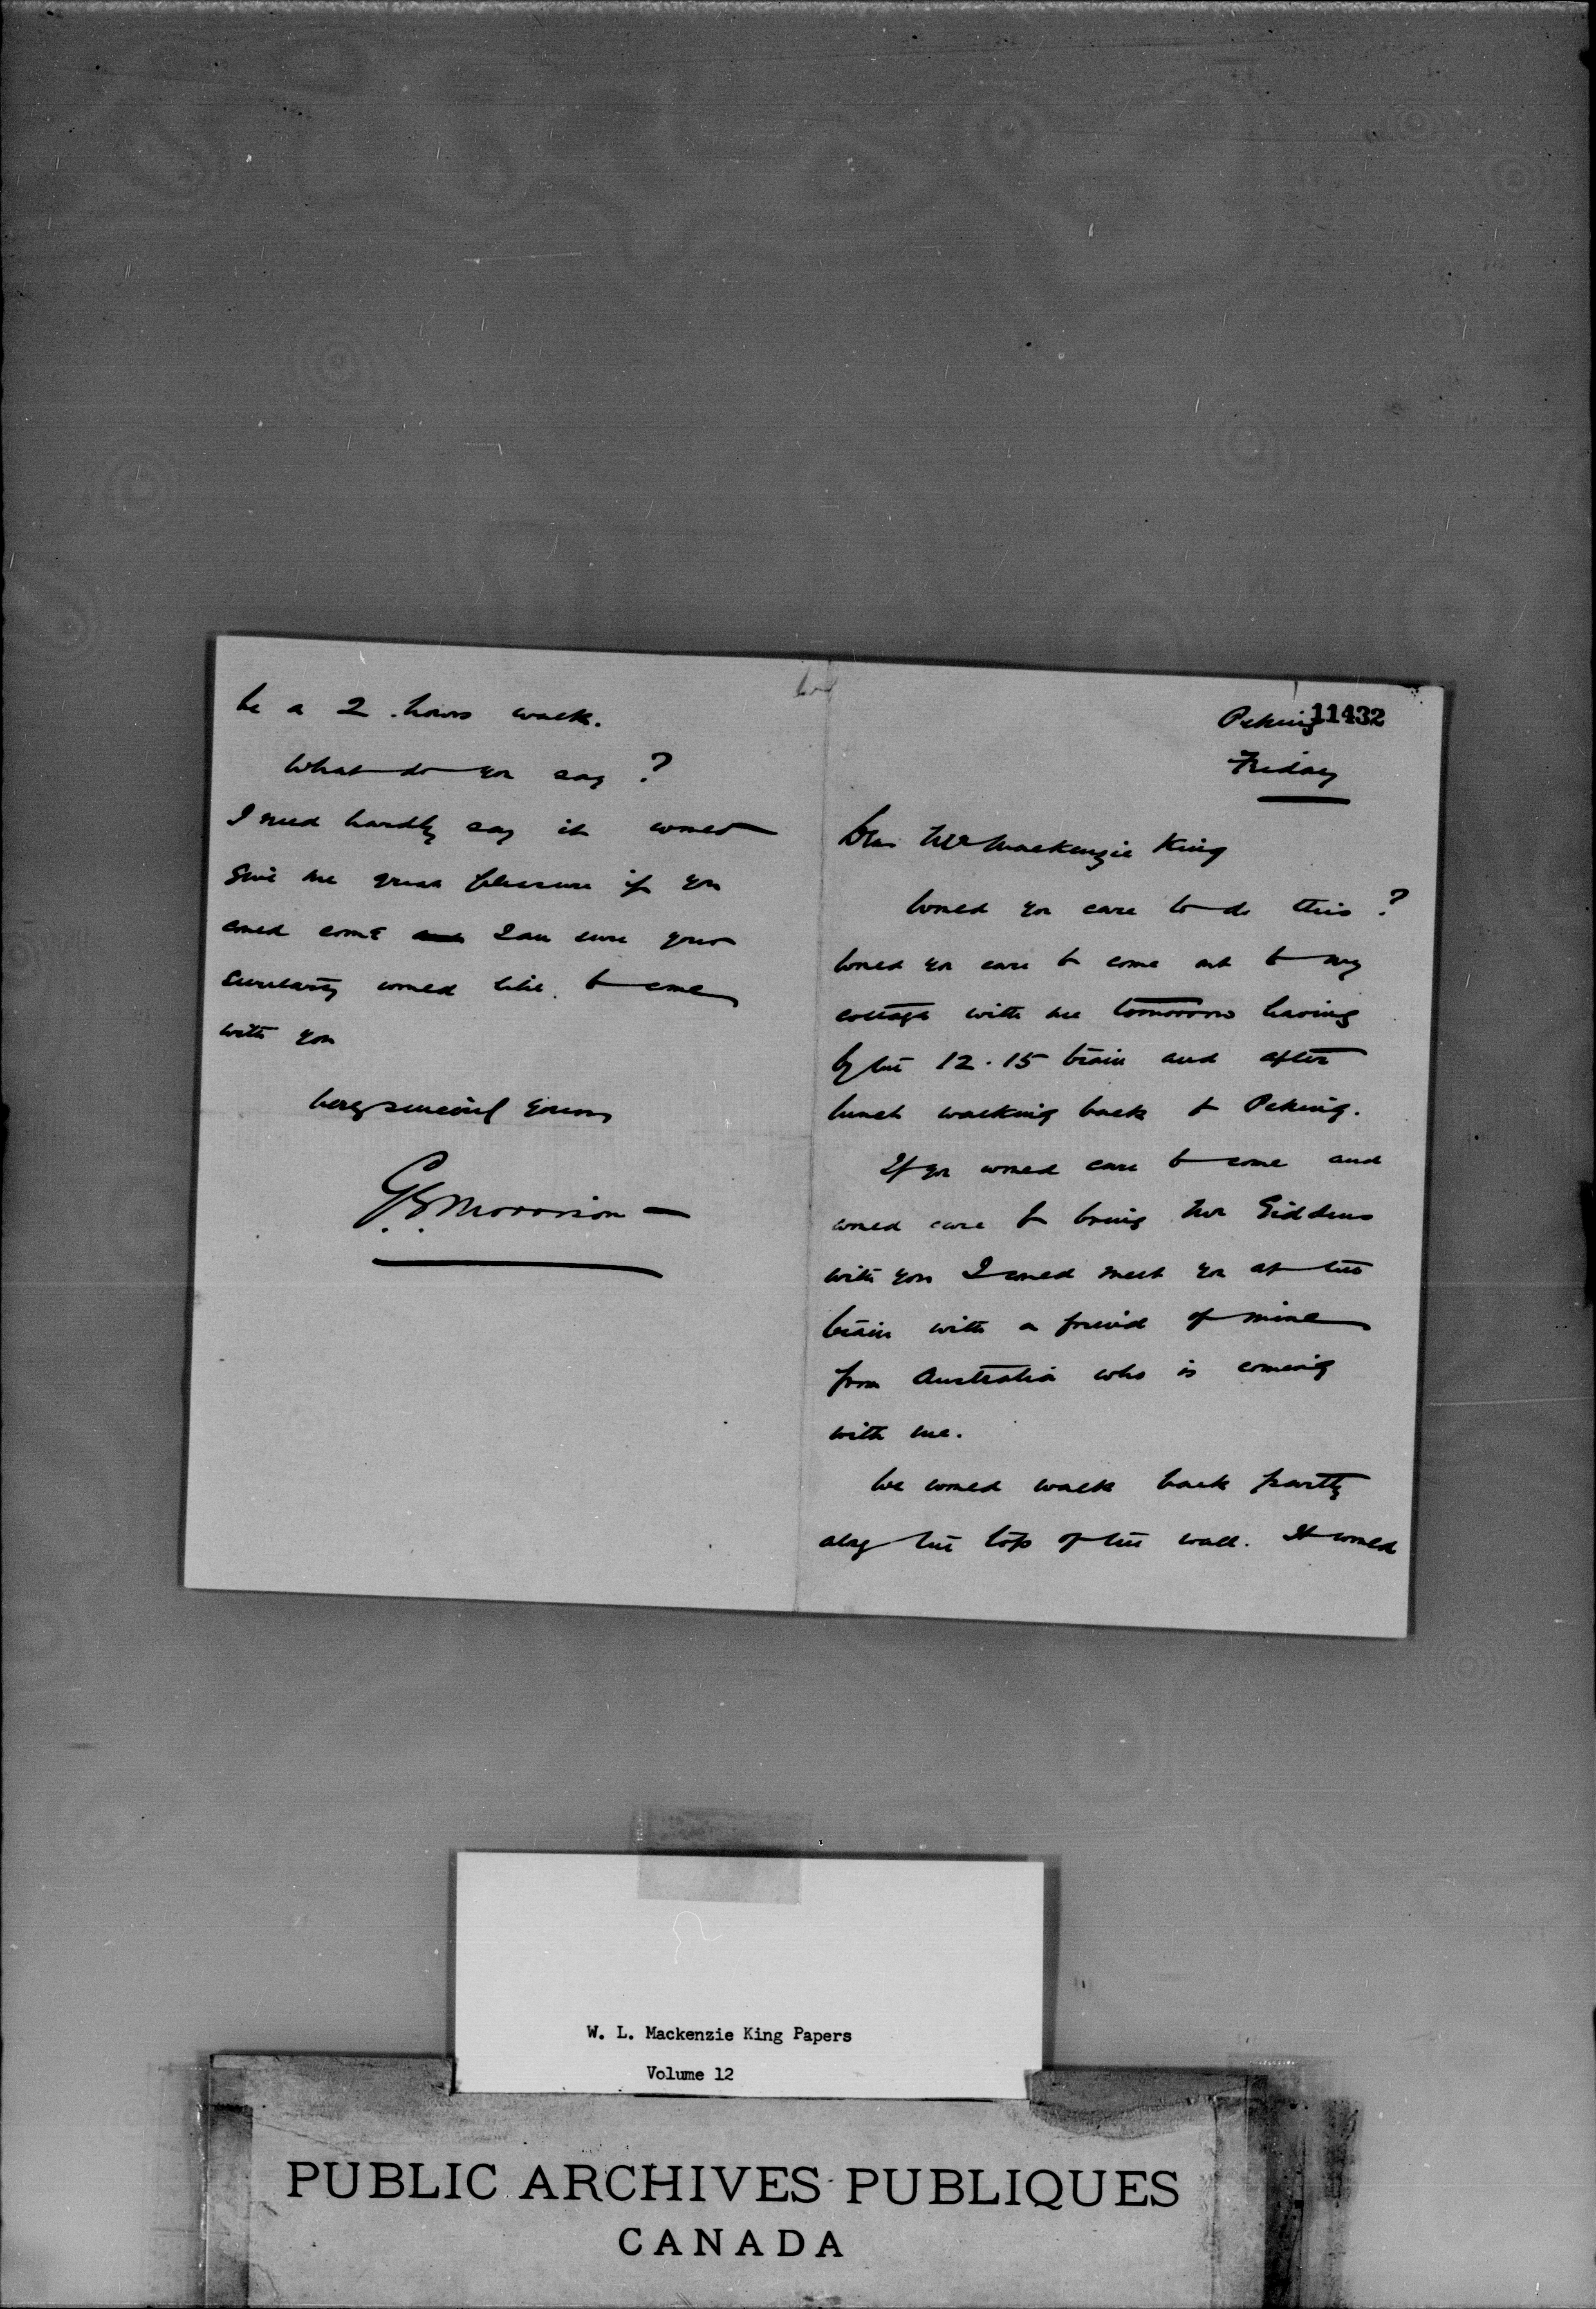 Peking
11432
Friday
Dear Mr Mackenzie King
Would you care to do this?
Would you care to come out to my
cottage with me tomorrow leaving
by the 12.15 train and after
lunch walking back to Peking.
If you would care to come and
would care to bring Mr Giddens
with you I could meet you at the
train with a friend of mine
from Australia who is coming
with me.
We would walk back partly
along the top of the wall. It would
be a 2 hours walk.
What do you say?
I need hardly say it would
give me great pleasure if you
could come I am sure your
secretary would like to come
with you
Very sincerely yours
G.E. Morrison
W. L. Mackenzie King Papers
Volume 12
PUBLIC ARCHIVES PUBLIQUES
CANADA